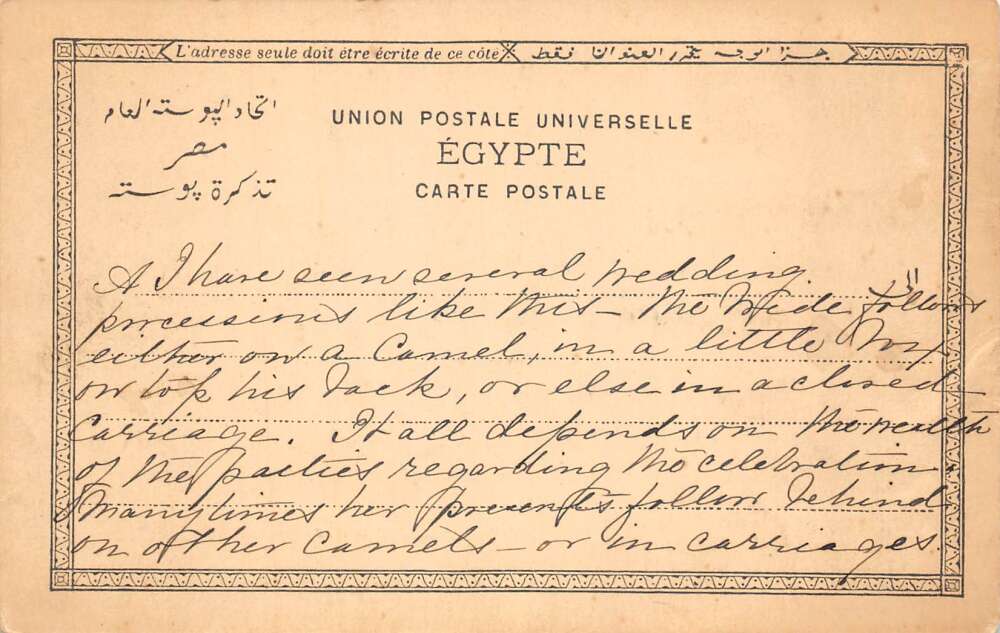 L'adresse seule doit être écrite de ce côté
هـذا الوجـه يحرر العنوان فقط
اتحاد البوسته العام
مصر
تذكرة پوسته
UNION POSTALE UNIVERSELLE
ÉGYPTE
CARTE POSTALE
I have seen several wedding
processions like this – the bride follows
either on a Camel, in a little box
on top his back, or else in a closed
carriage. It all depends on the wealth
of the parties regarding the celebration.
Many times her presents follow behind
on other camels – or in carriages.